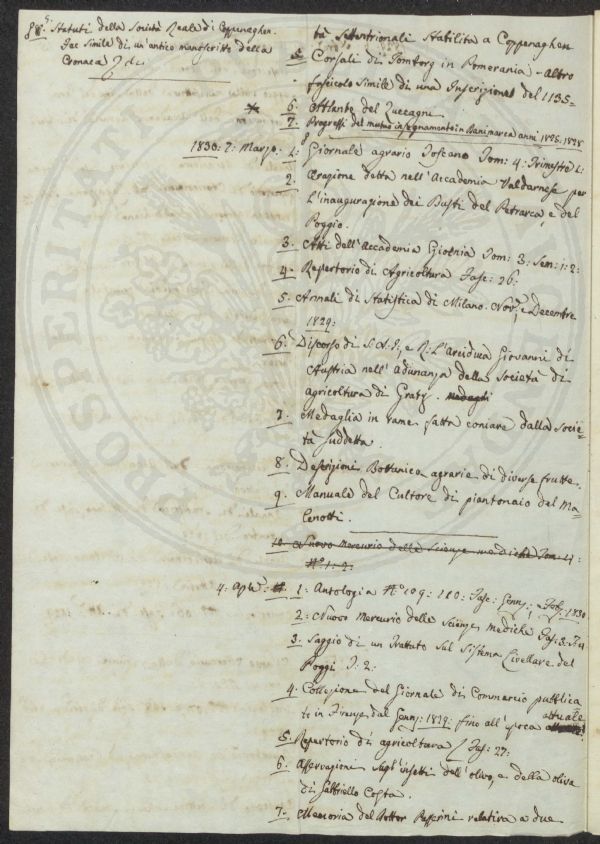 5. Statuti della Società Reale di Coppenaghen.
Fac Simile di un'antico manuscritto della
Cronaca
tà Settentrionali Stabilita a Coppenaghen
Corsali di Jomborg in Pomerania - Altro
fascicolo Simile di una Inscrizione del 1135=
6. Atlante del Zuccagni
7. Progressi del mutuo insegnamento in Danimarca anni 1828
1830: 7: Marzo. 1: Giornale agrario Toscano Tom: 4: Trimestre 1:
2. Orazione detta nell'Accademia Valdarnese per
l'inaugurazione dei Busti del Petrarca, e del
Poggio.
3. Atti dell'Accademia Gioenia Tom: 3: Sem: 1: 2:
4. Repertorio di Agricoltura Fasc: 26:
5. Annali di Statistica di Milano. Nov.e, e Decembre
1829:
6. Discorso di S. A. I., e R: L'Arciduca Giovanni di
Austria nell'Adunanza della Società di
agricoltura di Gratz.
7. Medaglia in rame, fatta coniare dalla Socie=
tà Suddetta.
8. Descrizioni Bottanico agrarie di diverse frutte.
9. Manuale del Cultore di piantonaio del Ma=
lenotti.
10. Nuovo Mercurio delle Scienze mediche Tom: 4:
N.o 1: 2:
4: Aple: 1: Antologia N.o 109: 110: Fasc: Genn:, e Feb: 1830
2: Nuovo Mercurio delle Scienze mediche Fas: 3:
3. Saggio di un Trattato sul Sistema Livellare del
Poggi T: 2:
4. Collezione del Giornale di Commercio pubblica
to in Firenze dal Genn: 1829: fino all'epoca attuale
5. Repertorio di agricoltura Fas: 27:
6. Osservazioni Sugl'insetti dell'olivo, e della oliva
di Gabbriello Costa.
7. Memoria del Dottor Passerini relativa a due
PROSPER ATI